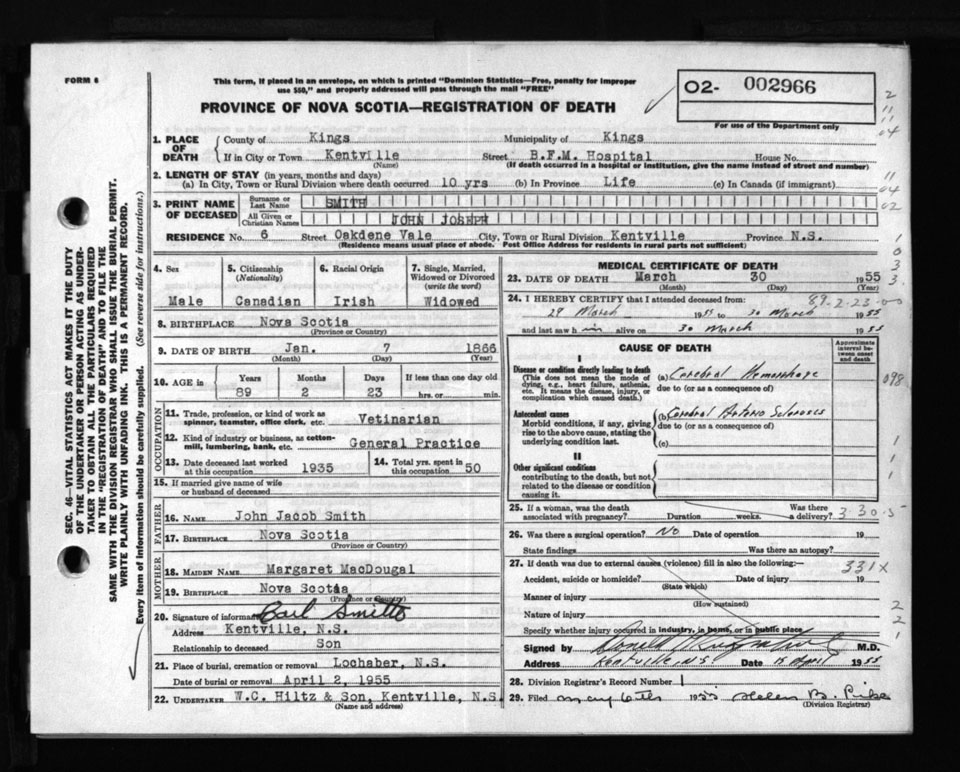 FORM 6
This form, if placed in an envelope, on which is printed "Dominion Statistics—Free, penalty for improper
use $50," and properly addressed will pass through the mail "FREE"
PROVINCE OF NOVA SCOTIA—REGISTRATION OF DEATH
02- 002966
For use of the Department only
1. PLACE OF DEATH
County of Kings Municipality of Kings
If in City or Town Kentville Street B.F.M. Hospital House No.
(Name) (If death occurred in a hospital or institution, give the name instead of street and number)
2. LENGTH OF STAY (in years, months and days)
(a) In City, Town or Rural Division where death occurred 10 yrs (b) In Province Life (c) In Canada (if immigrant)
3. PRINT NAME OF DECEASED
Surname or Last Name SMITH
All Given or Christian Names JOHN JOSEPH
RESIDENCE No. 6 Street Oakdene Vale City, Town or Rural Division Kentville Province N.S.
(Residence means usual place of abode. Post Office Address for residents in rural parts not sufficient)
4. Sex
Male
5. Citizenship (Nationality)
Canadian
6. Racial Origin
Irish
7. Single, Married, Widowed or Divorced (write the word)
Widowed
8. BIRTHPLACE Nova Scotia
(Province or Country)
9. DATE OF BIRTH Jan. 7 1866
(Month) (Day) (Year)
10. AGE in
Years Months Days If less than one day old
89 2 23 hrs. or min.
OCCUPATION
11. Trade, profession, or kind of work as spinner, teamster, office clerk, etc. Vetinarian
12. Kind of industry or business, as cotton-mill, lumbering, bank, etc. General Practice
13. Date deceased last worked at this occupation 1935
14. Total yrs. spent in this occupation 50
15. If married give name of wife or husband of deceased
FATHER
16. NAME John Jacob Smith
17. BIRTHPLACE Nova Scotia
(Province or Country)
MOTHER
18. MAIDEN NAME Margaret MacDougal
19. BIRTHPLACE Nova Scotia
(Province or Country)
20. Signature of informant Carl Smith
Address Kentville, N.S.
Relationship to deceased Son
21. Place of burial, cremation or removal Lochaber, N.S.
Date of burial or removal April 2, 1955
22. UNDERTAKER W.C. Hiltz & Son, Kentville, N.S.
(Name and address)
MEDICAL CERTIFICATE OF DEATH
23. DATE OF DEATH March 30 1955
(Month) (Day) (Year)
24. I HEREBY CERTIFY that I attended deceased from: 89-2-23-00
29 March 1955 to 30 March 1955
and last saw him alive on 30 March 1955
CAUSE OF DEATH
Approximate interval between onset and death
I
Disease or condition directly leading to death
(This does not mean the mode of dying, e.g., heart failure, asthenia, etc. It means the disease, injury, or complication which caused death.)
(a) Cerebral Hemorrhage
due to (or as a consequence of)
Antecedent causes
Morbid conditions, if any, giving rise to the above cause, stating the underlying condition last.
(b) Cerebral Arterio Sclerosis
due to (or as a consequence of)
(c)
II
Other significant conditions
contributing to the death, but not related to the disease or condition causing it.
25. If a woman, was the death associated with pregnancy? Duration weeks. Was there a delivery? 3-30-5
26. Was there a surgical operation? No Date of operation 19
State findings Was there an autopsy?
27. If death was due to external causes (violence) fill in also the following:— 331X
Accident, suicide or homicide? Date of injury 19
(State which)
Manner of injury
(How sustained)
Nature of injury
Specify whether injury occurred in industry, in home, or in public place
Signed by M.D.
Address Kentville, N.S. Date 15 April 1955
28. Division Registrar's Record Number 1
29. Filed May 6th 1955 Helen B. Pike
(Division Registrar)
SEC. 46—VITAL STATISTICS ACT MAKES IT THE DUTY
OF THE UNDERTAKER OR PERSON ACTING AS UNDER-
TAKER TO OBTAIN ALL THE PARTICULARS REQUIRED
IN THE "REGISTRATION OF DEATH" AND TO FILE THE
SAME WITH THE DIVISION REGISTRAR WHO SHALL ISSUE THE BURIAL PERMIT.
WRITE PLAINLY WITH UNFADING INK. THIS IS A PERMANENT RECORD.
Every item of information should be carefully supplied. (See reverse side for instructions.)
2
11
04
11
04
02
1
0
3
3
098
1
1
1
2
2
1